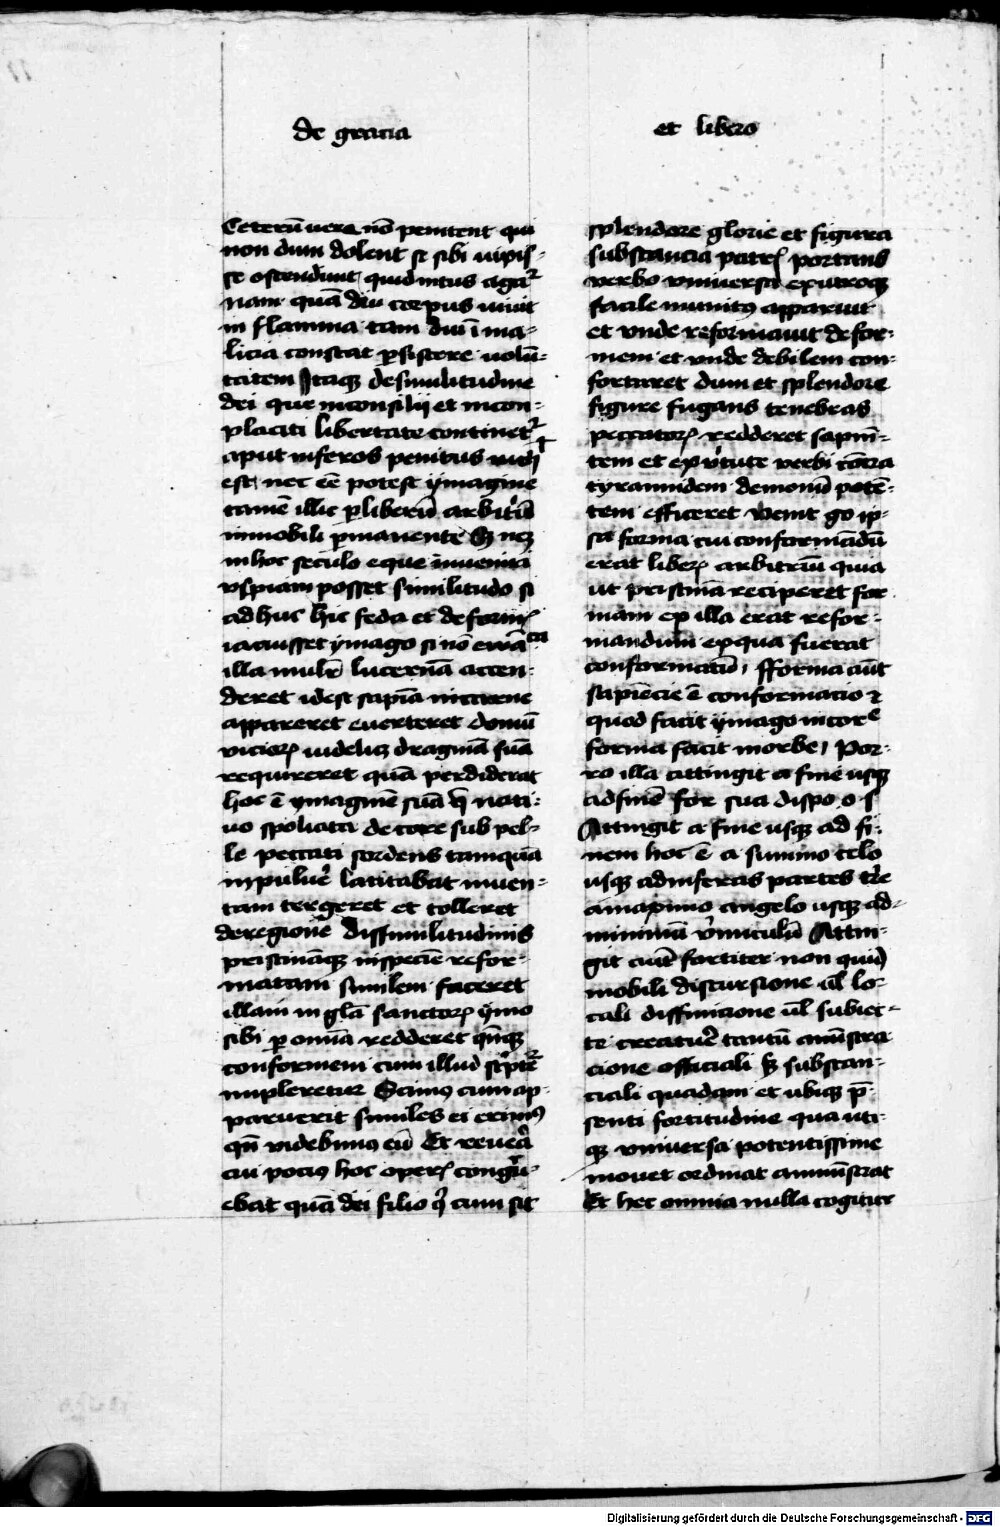 de gracia
et libero
Ceterū vere nō penitent qui
non dum dolent se sibi uipis-
se ostendunt quid intus agat᷑
nam quā diu corpus uiuit
in flamma tam diu ī ma-
licia constat ꝑsistere uolū-
tatem Itaqꝫ de similitudine
dei que in consilij et incon-
placiti libertate continet᷑
aput inferos penitus nichil
est nec eē potest ymagine
tamē illic ꝑ liberū arbitⁱū
inmobili ꝑmanente Sꝫ neqꝫ
in hoc seculo eque inueniri
vspiam posset similitudo si
ad huc hic feda et deformis
iacuisset ymago si nō ewāca
illa mulr̄ lucernā accen-
deret idest sapīa in carne
appareret euerteret domū
vicioꝝ uidelicꝫ dragmā suā
requireret quā perdiderat
hoc ē ymaginē suā q̄ nati-
uo spoliata decore sub pel-
le peccati sordens tamquā
in puluē latitabat inuen-
tam tergeret et tolleret
de regione dissimilitudinis
pristināqꝫ in speciē refor-
matam similem faceret
illam in gła sanctoꝝ ymo
sibi ꝑ omnīa redderet qn̄qꝫ
conformem cum illud scptᷓe
impleretur Scimꝰ cum ap-
paruerit similes ei erimꝰ
qn̄ videbimꝰ eū Et reuera
cui pociꝰ hoc operꝭ congru-
ebat quā dei filio qⁱ cum sit
splendore glorie et figura
substancia patrꝭ portans
verbo vniuersa ex utroqꝫ
facile munitꝰ apparuit
et vnde reformauit defor-
mem et vnde debilem con-
fortaret dum et splendore
figure fugans tenebras
peccatoꝝ redderet sapiē-
tem et ex v̓tute verbi cōtra
tyrannidem demonū potē-
tem efficeret Venit go ip-
sa forma cui conformādū
erat liberꝝ arbitriū quia
ut pristinā reciperet for
mam ex illa erat refor-
mandum ex qua fuerat
conformatū fforma aūt
sapiēcie ē conformacio ⁊
quod facit ymago in core
forma facit in orbe Por-
ro illa attingit a fine usqꝫ
ad finē for sua dispo o s
Attingit a fine usqꝫ ad fi-
nem hoc ē a summo celo
usqꝫ ad inferas partes tr̄e
a maximo angelo usqꝫ ad
minimū v̓miculū Attin-
git aut fortiter non quidē
mobili discursione ul̄ lo-
cali diffinicione ul̄ subiec-
te creatuē tantū aminstra
cione officiali sꝫ substan-
ciali quadam et ubiqꝫ p̄-
senti fortitudine qua uti-
qꝫ vniuersa potentissime
mouet ordinat aminnistrat
Et hec omnia nulla cogitur